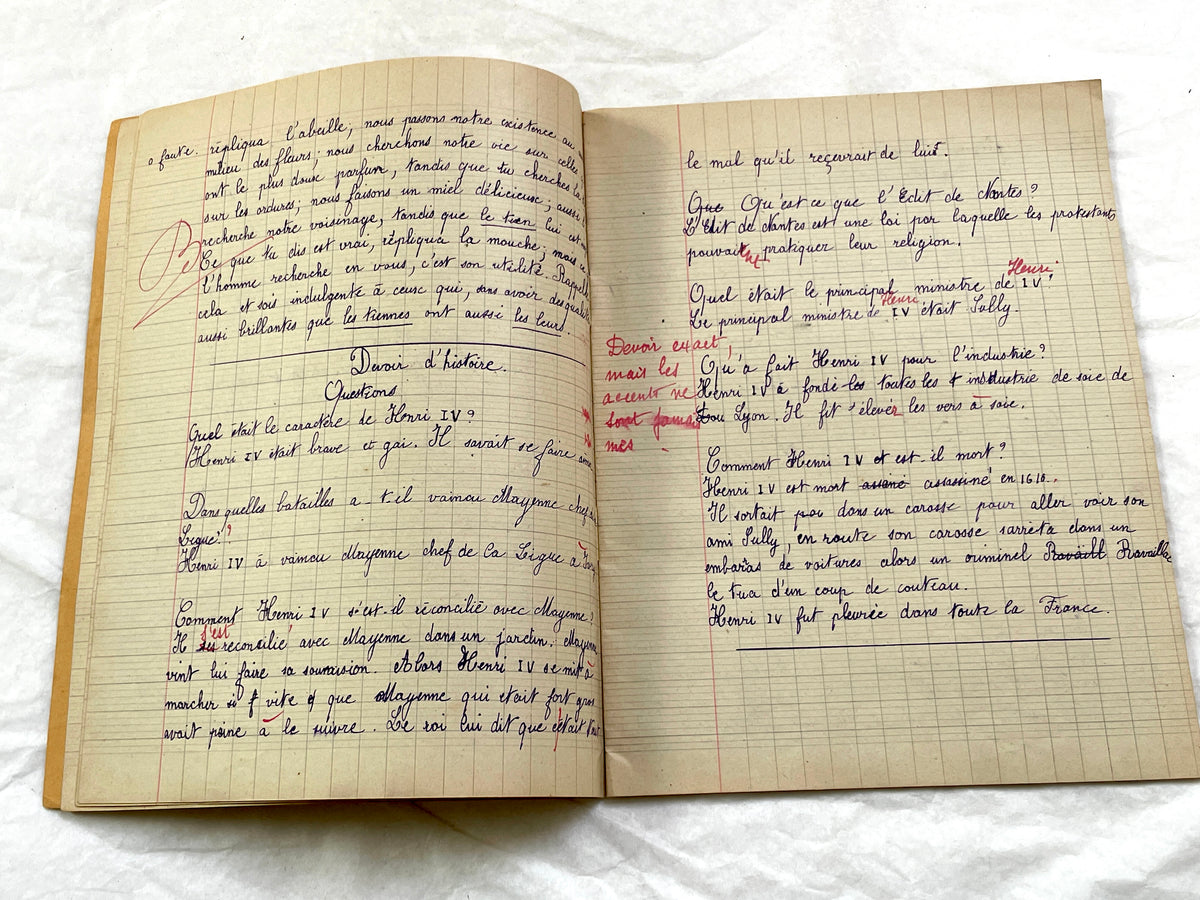 0 faute.
répliqua l'abeille, nous passons notre existence au
milieu des fleurs; nous cherchons notre vie sur celles
ont le plus doux parfum, tandis que tu cherches la
sur les ordures; nous faisons un miel délicieuse; aussi
recherche notre voisinage, tandis que le tien lui est
Ce que tu dis est vrai, répliqua la mouche; mais ce
l'homme recherche en vous, c'est son utilité. Rappelle
cela et sois indulgente à ceux qui, sans avoir des qualités
aussi brillantes que les tiennes ont aussi les leurs.
Devoir d'histoire.
Questions
Quel était le caractère de Henri IV?
Henri IV était brave et gai. Il savait se faire
Dans quelles batailles a-t-il vaincu Mayenne chef
Ligue?
Henri IV à vaincu Mayenne chef de la Ligue à
Comment Henri IV s'est-il réconcilié avec Mayenne?
Il s'est reconcilié avec Mayenne dans un jardin. Mayenne
vint lui faire sa soumission. Alors Henri IV se mit à
marcher si vite que Mayenne qui était fort gros
avait peine à le suivre. Le roi lui dit que c'était
le mal qu'il reçevrait de lui.
Que Qu'est ce que l'Edit de Nantes?
L'Edit de Nantes est une loi par laquelle les protestants
pouvait pratiquer leur religion.
Henri
Quel était le principal ministre de IV
Henri
Le principal ministre de IV était Sully.
Devoir exact,
mais les
accents ne
sont jamais
mis.
Qu'à fait Henri IV pour l'industrie?
Henri IV à fondé les toutes les industrie de soie de
Lyon. Il fit élever les vers à soie.
Comment Henri IV et est-il mort?
Henri IV est mort assassiné en 1610.
Il sortait dans un carosse pour aller voir son
ami Sully, en route son carosse sarrêta dans un
embarras de voitures alors un criminel Ravaill Ravaillac
le tua d'un coup de couteau.
Henri IV fut pleurée dans toute la France.